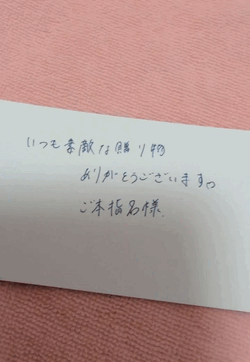 いつも素敵な贈り物
ありがとうございます。
ご本指名様